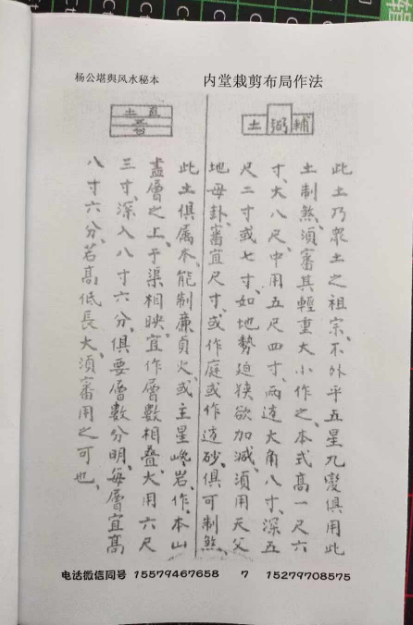 杨公堪舆风水秘本
内堂栽剪布局作法
土 弼 輔
此土乃衆土之祖宗、不外乎五星九變俱用此
土制煞、須審其輕重大小作之、本式高一尺六
寸、大八尺、中用五尺四寸、兩邊大角八寸、深五
尺二寸或七寸、如地勢迫狹欲加減、須用天父
地母卦、審宜尺寸、或作庭或作邊砂、俱可制煞、
土
此土俱屬本、能制廉貞火、或主星巉岩、作本山
盡層之上、于渠相映宜作層數相叠、大用六尺
三寸、深入八寸六分、俱要層數分明、每層宜高
八寸六分、若高低長大須審用之可也、
电话微信同号 15579467658 7 15279708575